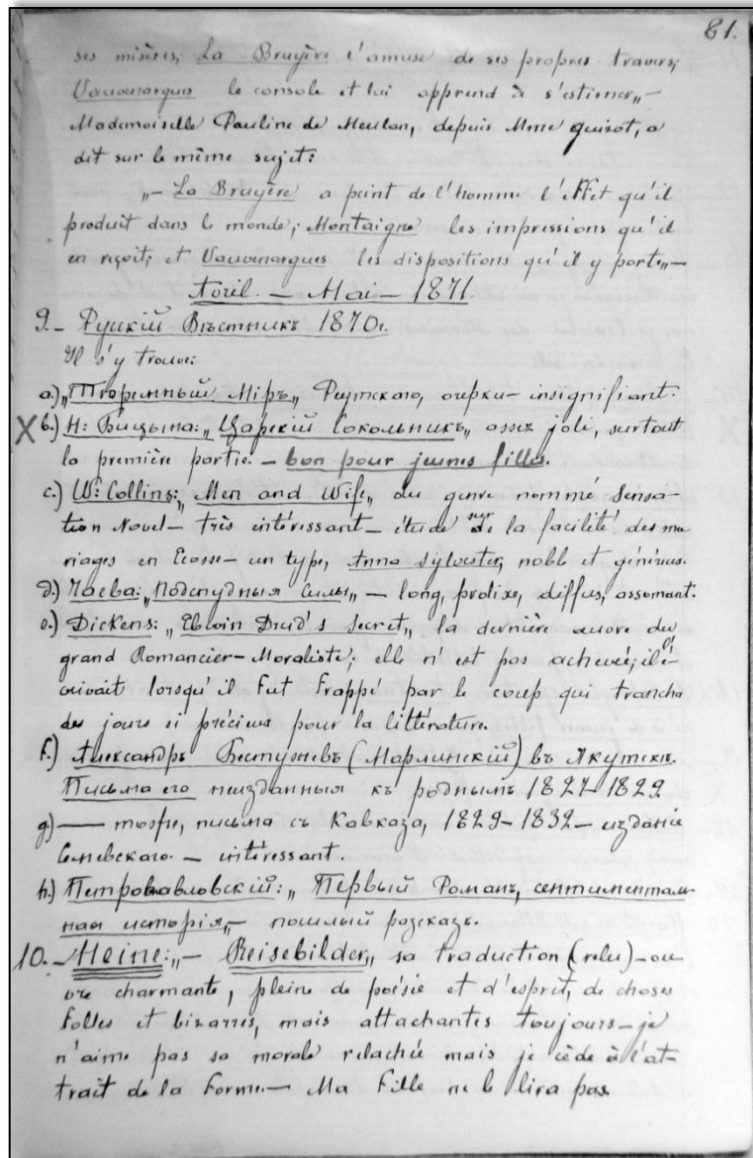 81.
ses misères, La Bruyère l'amuse de ses propres travers,
Vauvenargues le console et lui apprend à s'estimer„—
Mademoiselle Pauline de Meulan, depuis Mme guizot, a
dit sur le même sujet:
„— La Bruyère a peint de l'homme l'effet qu'il
produit dans le monde; Montaigne les impressions qu'il
en reçoit; et Vauvenargues les dispositions qu'il y porte„—
Avril — Mai — 1871.
9.— Русскій Вѣстникъ 1870 г.
Il s'y trouve:
a.) „Тюремный Міръ„ Реутскаго, очерки— insignifiant.
X b.) Н: Бицына: „Царскій Сокольникъ„ assez joli, surtout
la première partie. — bon pour jeunes filles.
c.) W: Collins: „Men and Wife„ du genre nommé Sensa-
tion Novel— très intéressant— étude sur de la facilité des ma
riages en Ecosse— un type, Anna Sylvester, noble et généreux.
d.) Чаева: „Подспудныя Силы„ — long, prolixe, diffus, assomant.
e.) Dickens: „Edwin Drud's Secret„ la dernière œuvre du
grand Romancier-Moraliste; elle n'est pas achevée; il l'é-
crivait lorsqu'il fut frappé par le coup qui trancha
des jours si précieux pour la littérature.
f.) Александръ Бестужевъ (Марлинскій) въ Якутскѣ.
Письма его неизданныя къ роднымъ 1827-1829
g) —— тоже, письма съ Кавказа, 1829-1832— изданіе
Семевскаго. — intéressant.
h.) Петропавловскій: „Первый Романъ, сентименталь-
ная исторія„— пошлый розсказъ.
10.— Heine: „— Reisebilder„ sa traduction (relu)— œu
vre charmante, pleine de poésie et d'esprit, de choses
folles et bizarres, mais attachantes toujours— je
n'aime pas sa morale relachée mais je cède à l'at-
trait de la forme.— Ma fille ne le lira pas.